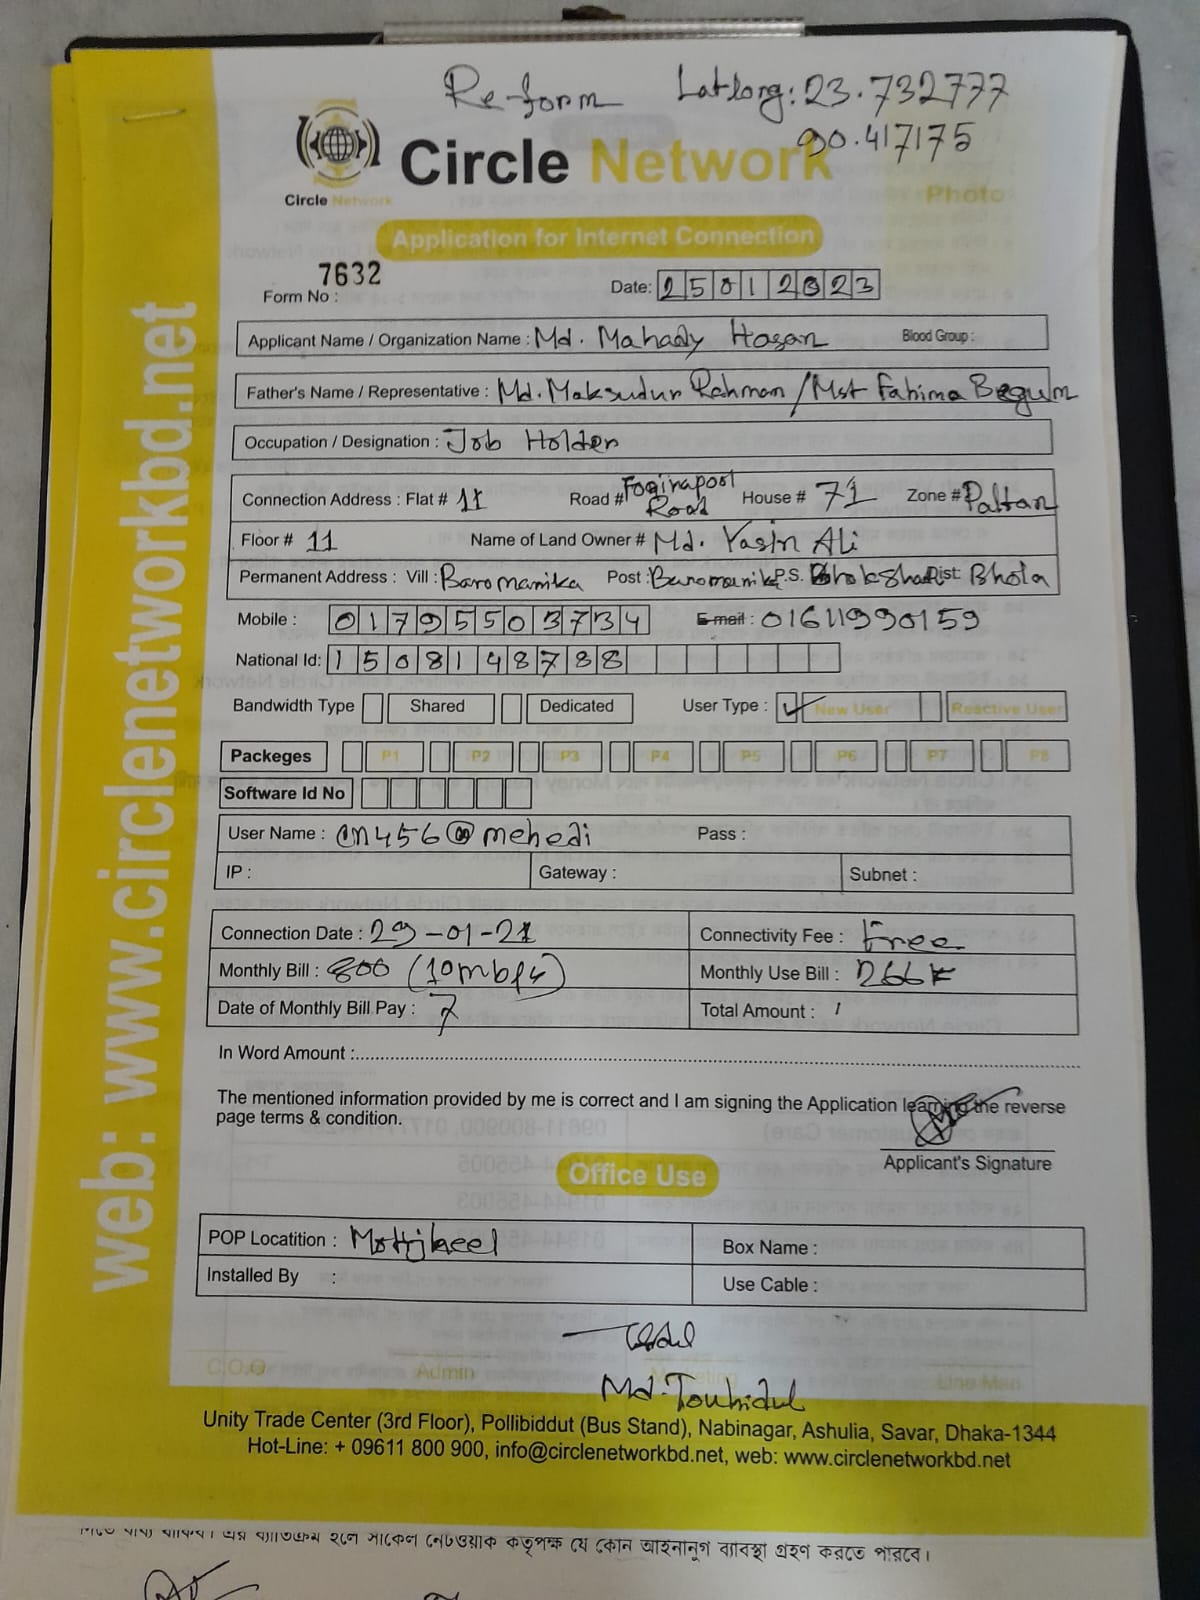 Re-form Latlong: 23.732777
90.417175
Circle Network
Circle Network
Photo
Application for Internet Connection
Form No : 7632
Date: 25012023
Applicant Name / Organization Name : Md. Mahady Hasan Blood Group :
Father's Name / Representative : Md. Maksudur Rahman / Mst Fahima Begum
Occupation / Designation : Job Holder
Connection Address : Flat # 11 Road # Fogirapool Road House # 71 Zone # Paltan
Floor # 11 Name of Land Owner # Md. Yasin Ali
Permanent Address : Vill : Baromanika Post : Baromanika P.S. Dist: Bhola
Mobile : 01795503734 E-mail : 01611990159
National Id: 1508148788
Bandwidth Type Shared Dedicated User Type : New User Reactive User
Packeges P1 P2 P3 P4 P5 P6 P7 P8
Software Id No
User Name : cn456@mehedi Pass :
IP : Gateway : Subnet :
Connection Date : 29-01-21 Connectivity Fee : Free
Monthly Bill : 800 (10mbps) Monthly Use Bill : 266
Date of Monthly Bill Pay : 7 Total Amount :
In Word Amount :
The mentioned information provided by me is correct and I am signing the Application learning the reverse
page terms & condition.
Applicant's Signature
Office Use
POP Locatition : Mottijheel Box Name :
Installed By : Use Cable :
C.O.O Admin Marketing Line Man
Md. Touhidul
Unity Trade Center (3rd Floor), Pollibiddut (Bus Stand), Nabinagar, Ashulia, Savar, Dhaka-1344
Hot-Line: + 09611 800 900, info@circlenetworkbd.net, web: www.circlenetworkbd.net
web: www.circlenetworkbd.net
দিতে বাধ্য থাকিব। এর ব্যতিক্রম হলে সার্কেল নেটওয়ার্ক কতৃপক্ষ যে কোন আইনানুগ ব্যাবস্থা গ্রহণ করতে পারবে।